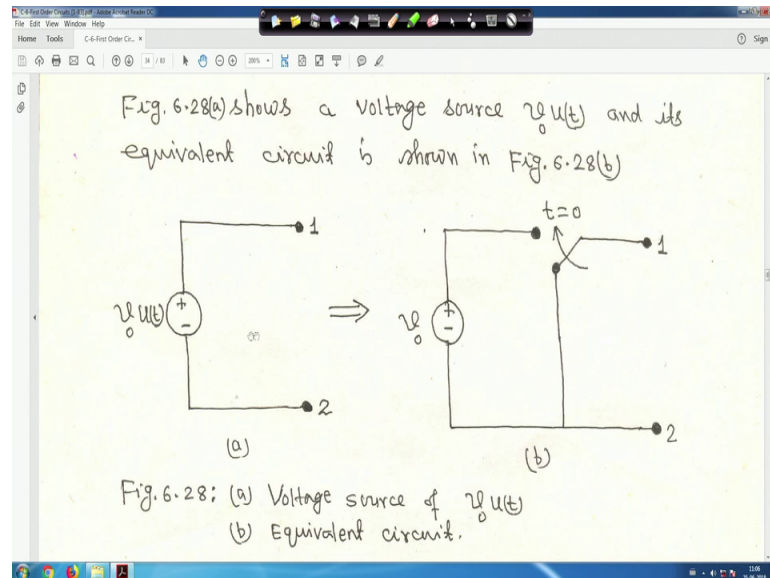 C-6-First Order Circuits [1-83].pdf - Adobe Acrobat Reader DC
File Edit View Window Help
Home Tools C-6-First Order Cir... × Sign
34 / 83 200%
Fig. 6.28(a) shows a voltage source V₀u(t) and its
equivalent circuit is shown in Fig. 6.28(b)
t=0
1
1
V₀u(t) + -
⇒
V₀ + -
2
2
(a)
(b)
Fig. 6.28: (a) Voltage source of V₀u(t)
(b) Equivalent circuit.
11:06